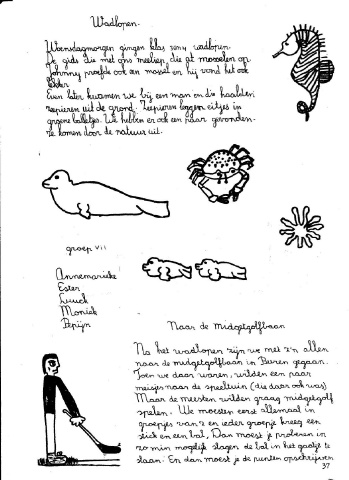 Wadlopen.
Woensdagmorgen gingen klas 5en4 wadlopen.
De gids die met ons meeliep die at mosselen op
Johnny proefde ook een mossel en hij vond het ook
lekker
Even later kwamen we bij een man en die haalden
zeepieren uit de grond. Zeepieren leggen eitjes in
groene balletjes. We hebben er ook een paar gevonden.
ze komen door de natuur uit.
groep VII
Annemarieke
Ester
Luuck
Moniek
Pepijn
Naar de Midgetgolfbaan
Na het wadlopen zijn we met z'n allen
naar de midgetgolfbaan in Buren gegaan.
Toen we daar waren, wilden een paar
meisjes naar de speeltuin (die daar ook was)
Maar de meesten wilden graag midgetgolf
spelen. We moesten eerst allemaal in
groepjes van 2 en ieder groepje kreeg een
stick en een bal, Dan moest je proberen in
zo min mogelijk slagen de bal in het gaatje te
slaan. En dan moest je de punten opschrijven
37